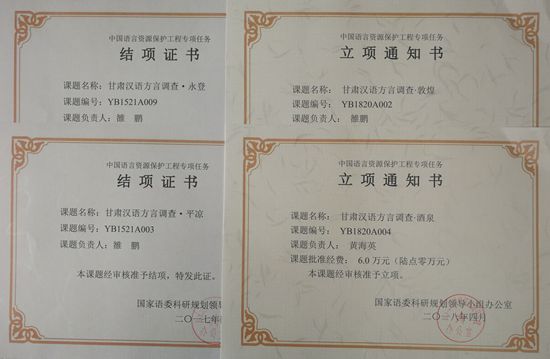 中国语言资源保护工程专项任务
结项证书
课题名称：甘肃汉语方言调查·永登
课题编号：YB1521A009
课题负责人：雒　鹏
中国语言资源保护工程专项任务
立项通知书
课题名称：甘肃汉语方言调查·敦煌
课题编号：YB1820A002
课题负责人：雒鹏
中国语言资源保护工程专项任务
结项证书
课题名称：甘肃汉语方言调查·平凉
课题编号：YB1521A003
课题负责人：雒　鹏
本课题经审核准予结项，特发此证。
国家语委科研规划领导
二〇一七年
中国语言资源保护工程专项任务
立项通知书
课题名称：甘肃汉语方言调查·酒泉
课题编号：YB1820A004
课题负责人：黄海英
课题批准经费：6.0 万元（陆点零万元）
本课题经审核准予立项。
国家语委科研规划领导小组办公室
二〇一八年四月
办公室